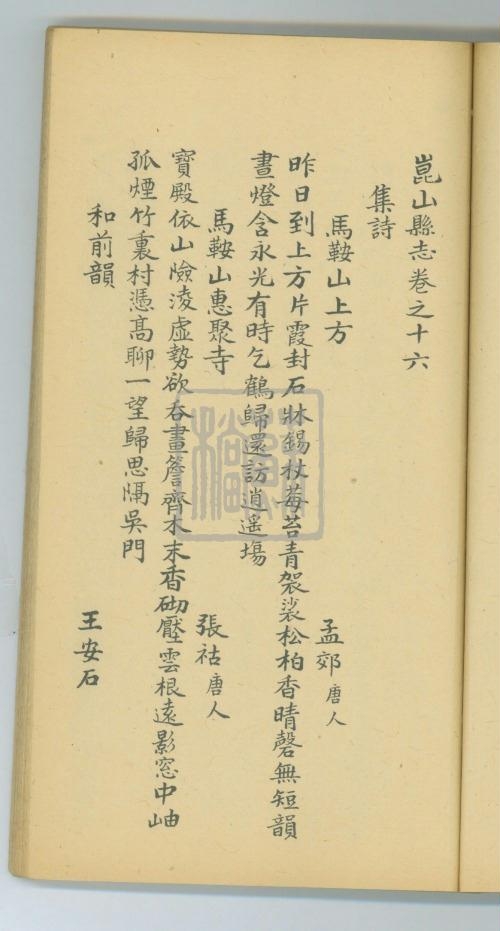 崑山縣志卷之十六
集詩
馬鞍山上方
孟郊唐人
昨日到上方片霞封石牀錫杖莓苔青袈裟松柏香晴磬無短韻
晝燈含永光有時乞鶴歸還訪逍遙塲
馬鞍山惠聚寺
張祜唐人
寳殿依山嶮淩虛勢欲吞畫簷齊木末香砌壓雲根遠影窓中岫
孤煙竹裏村憑髙聊一望歸思隔吳門
和前韻
王安石